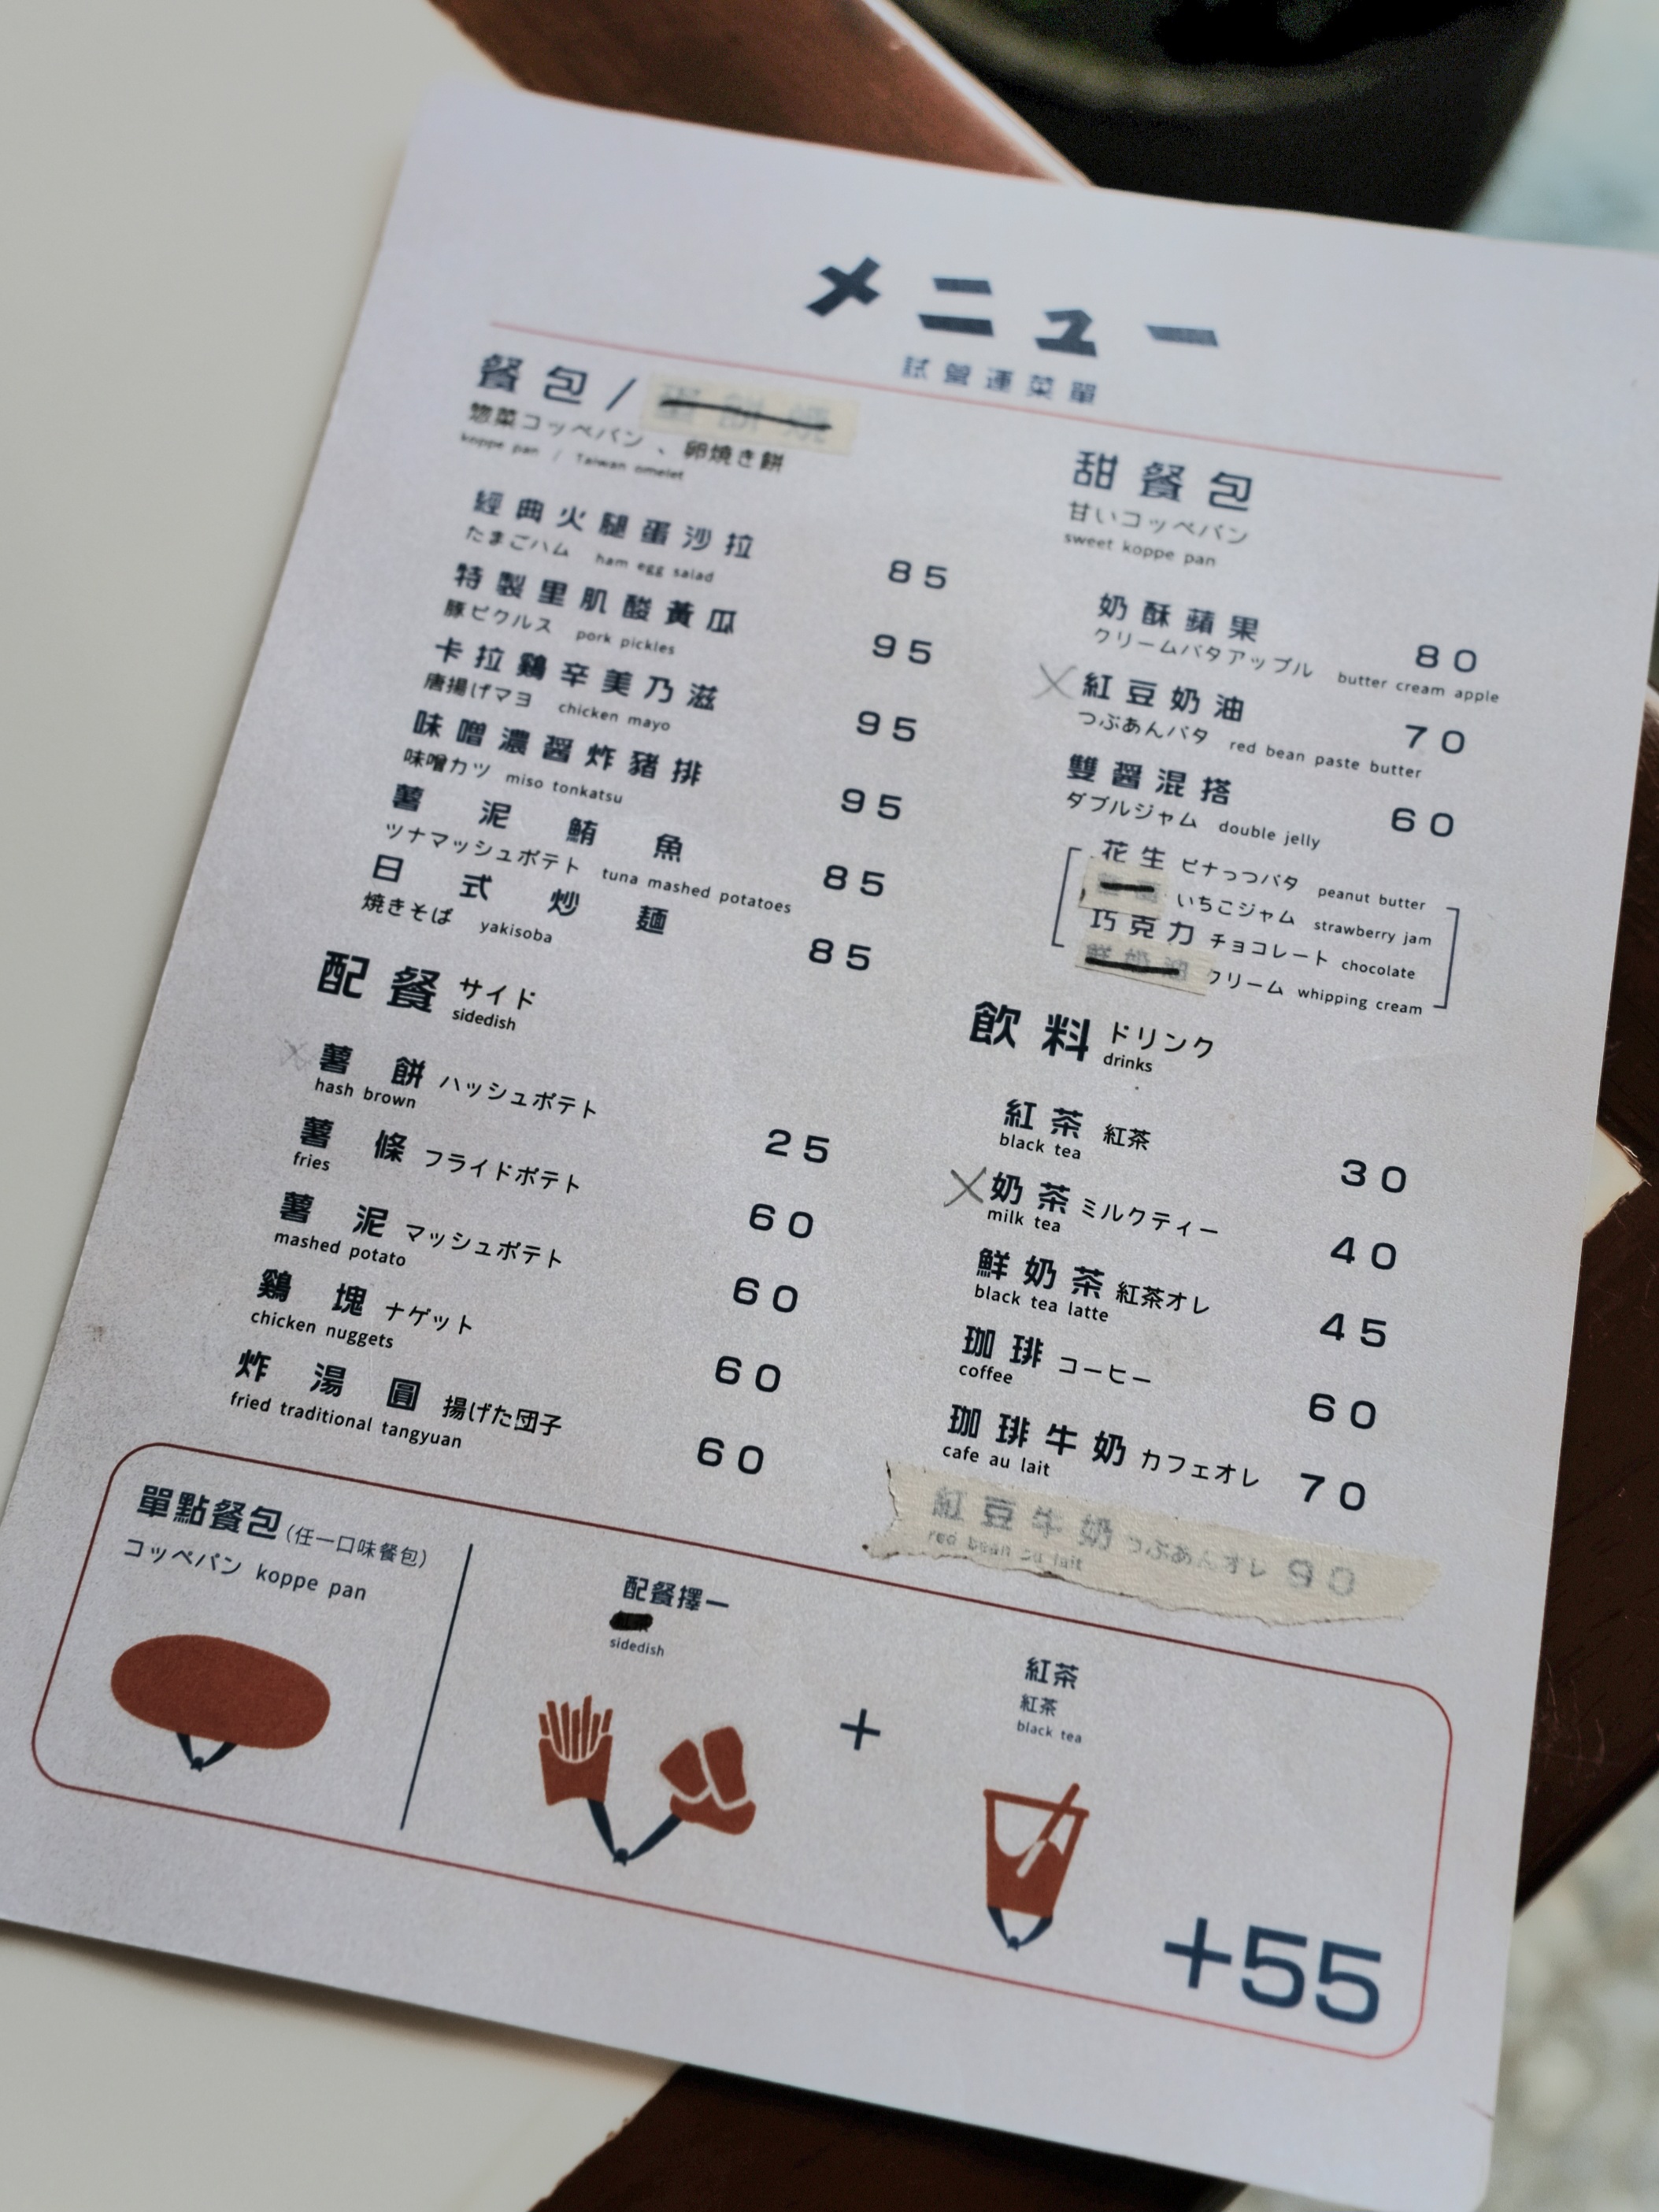 メニュー
試營運菜單
餐包/
惣菜コッペパン、卵焼き餅
koppe pan / Taiwan omelet
經典火腿蛋沙拉 85
たまごハム ham egg salad
特製里肌酸黃瓜 95
豚ピクルス pork pickles
卡拉鷄辛美乃滋 95
唐揚げマヨ chicken mayo
味噌濃醤炸豬排 95
味噌カツ miso tonkatsu
薯泥鮪魚 85
ツナマッシュポテト tuna mashed potatoes
日式炒麵 85
焼きそば yakisoba
配餐 サイド
sidedish
薯餅 ハッシュポテト 25
hash brown
薯條 フライドポテト 60
fries
薯泥 マッシュポテト 60
mashed potato
鷄塊 ナゲット 60
chicken nuggets
炸湯圓 揚げた団子 60
fried traditional tangyuan
甜餐包
甘いコッペパン
sweet koppe pan
奶酥蘋果 80
クリームバタアップル butter cream apple
紅豆奶油 70
つぶあんバタ red bean paste butter
雙醤混搭 60
ダブルジャム double jelly
花生 ピナっつバタ peanut butter
いちごジャム strawberry jam
巧克力 チョコレート chocolate
鮮奶油 クリーム whipping cream
飲料 ドリンク
drinks
紅茶 紅茶 30
black tea
奶茶 ミルクティー 40
milk tea
鮮奶茶 紅茶オレ 45
black tea latte
珈琲 コーヒー 60
coffee
珈琲牛奶 カフェオレ 70
cafe au lait
紅豆牛奶 つぶあんオレ 90
red bean au lait
單點餐包(任一口味餐包)
コッペパン koppe pan
配餐擇一
sidedish
+
紅茶
紅茶
black tea
+55